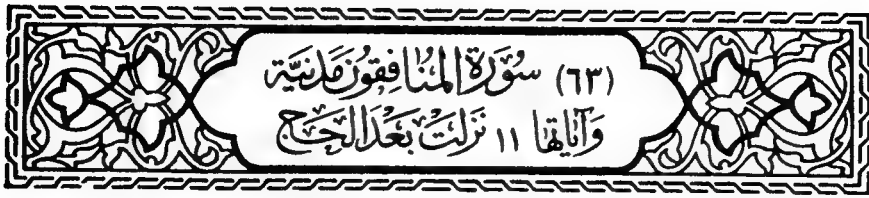 (٦٣) سُوْرَةُ المُنَافِقُونَ مَدَنِيَّة
وَآيَاتُهَا ١١ نَزَلَتْ بَعْدَ الْحَجّ